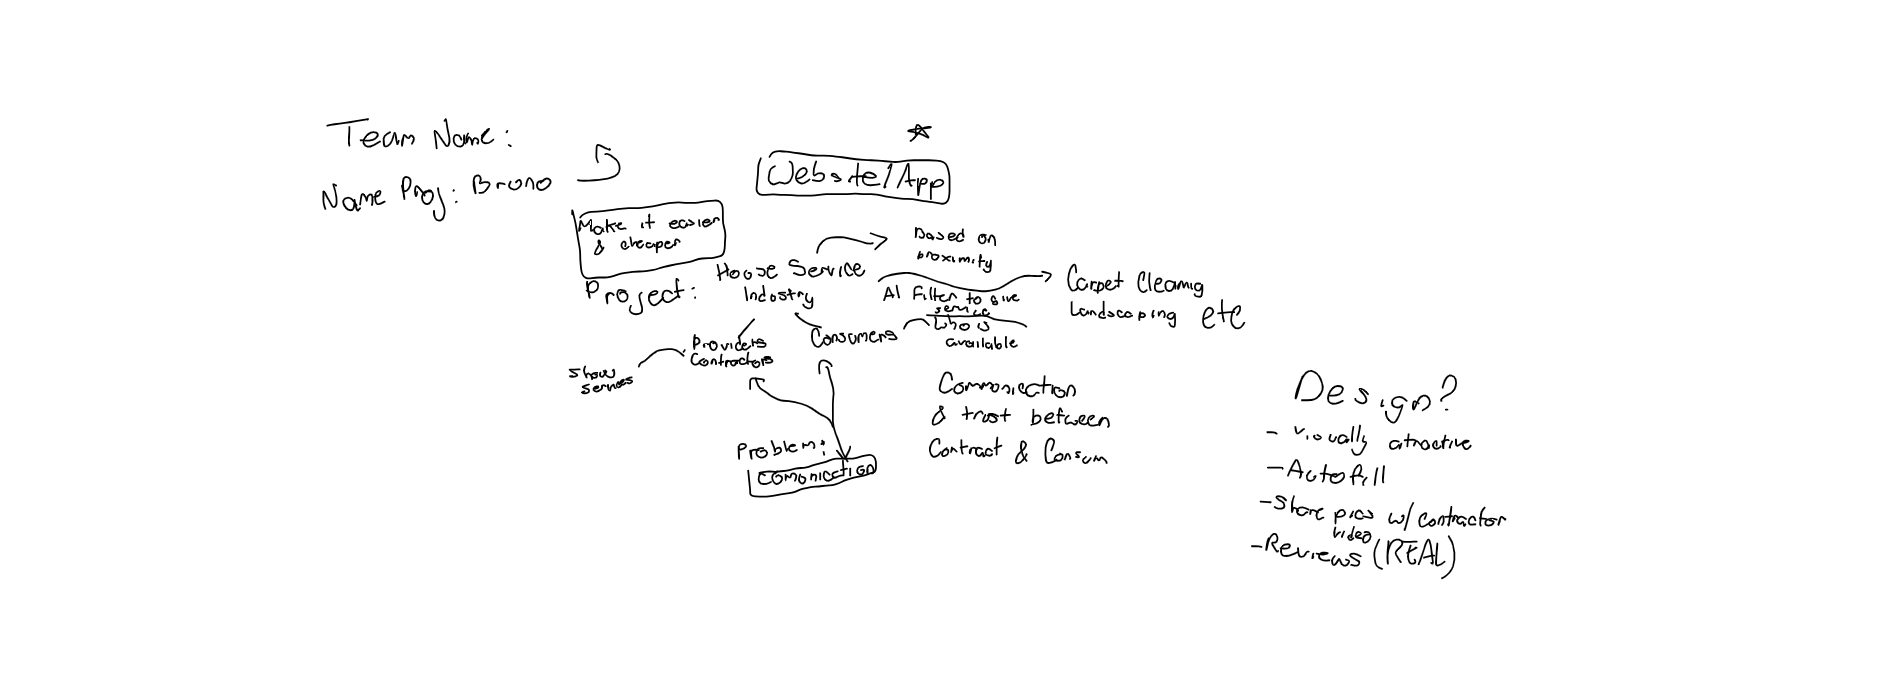 Team Name:
Name Proj: Bruno
Website/App
Make it easier
& cheaper
Project:
House Service
Industry
Based on
proximity
AI Filter to give
service
who is
available
Carpet Cleaning
Landscaping etc
Providers
Contractors
Consumers
Show
Services
Problem:
Comunication
Communication
& trust between
Contract & Consum
Design?
- Visually attractive
- Autofill
- Share pics w/ contractor
video
- Reviews (REAL)